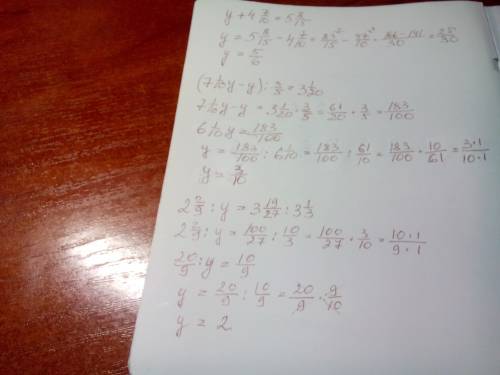 y + 4 7/10 = 5 8/15
y = 5 8/15 - 4 7/10 = 83/15 ² - 47/10 ³ = 166 - 141/30 = 25/30
y = 5/6
(7 1/10 y - y) : 3/5 = 3 1/20
7 1/10 y - y = 3 1/20 · 3/5 = 61/20 · 3/5 = 183/100
6 1/10 y = 183/100
y = 183/100 : 6 1/10 = 183/100 : 61/10 = 183/100 · 10/61 = 3·1/10·1
y = 3/10
2 2/9 : y = 3 19/27 : 3 1/3
2 2/9 : y = 100/27 : 10/3 = 100/27 · 3/10 = 10·1/9·1
20/9 : y = 10/9
y = 20/9 : 10/9 = 20/9 · 9/10
y = 2